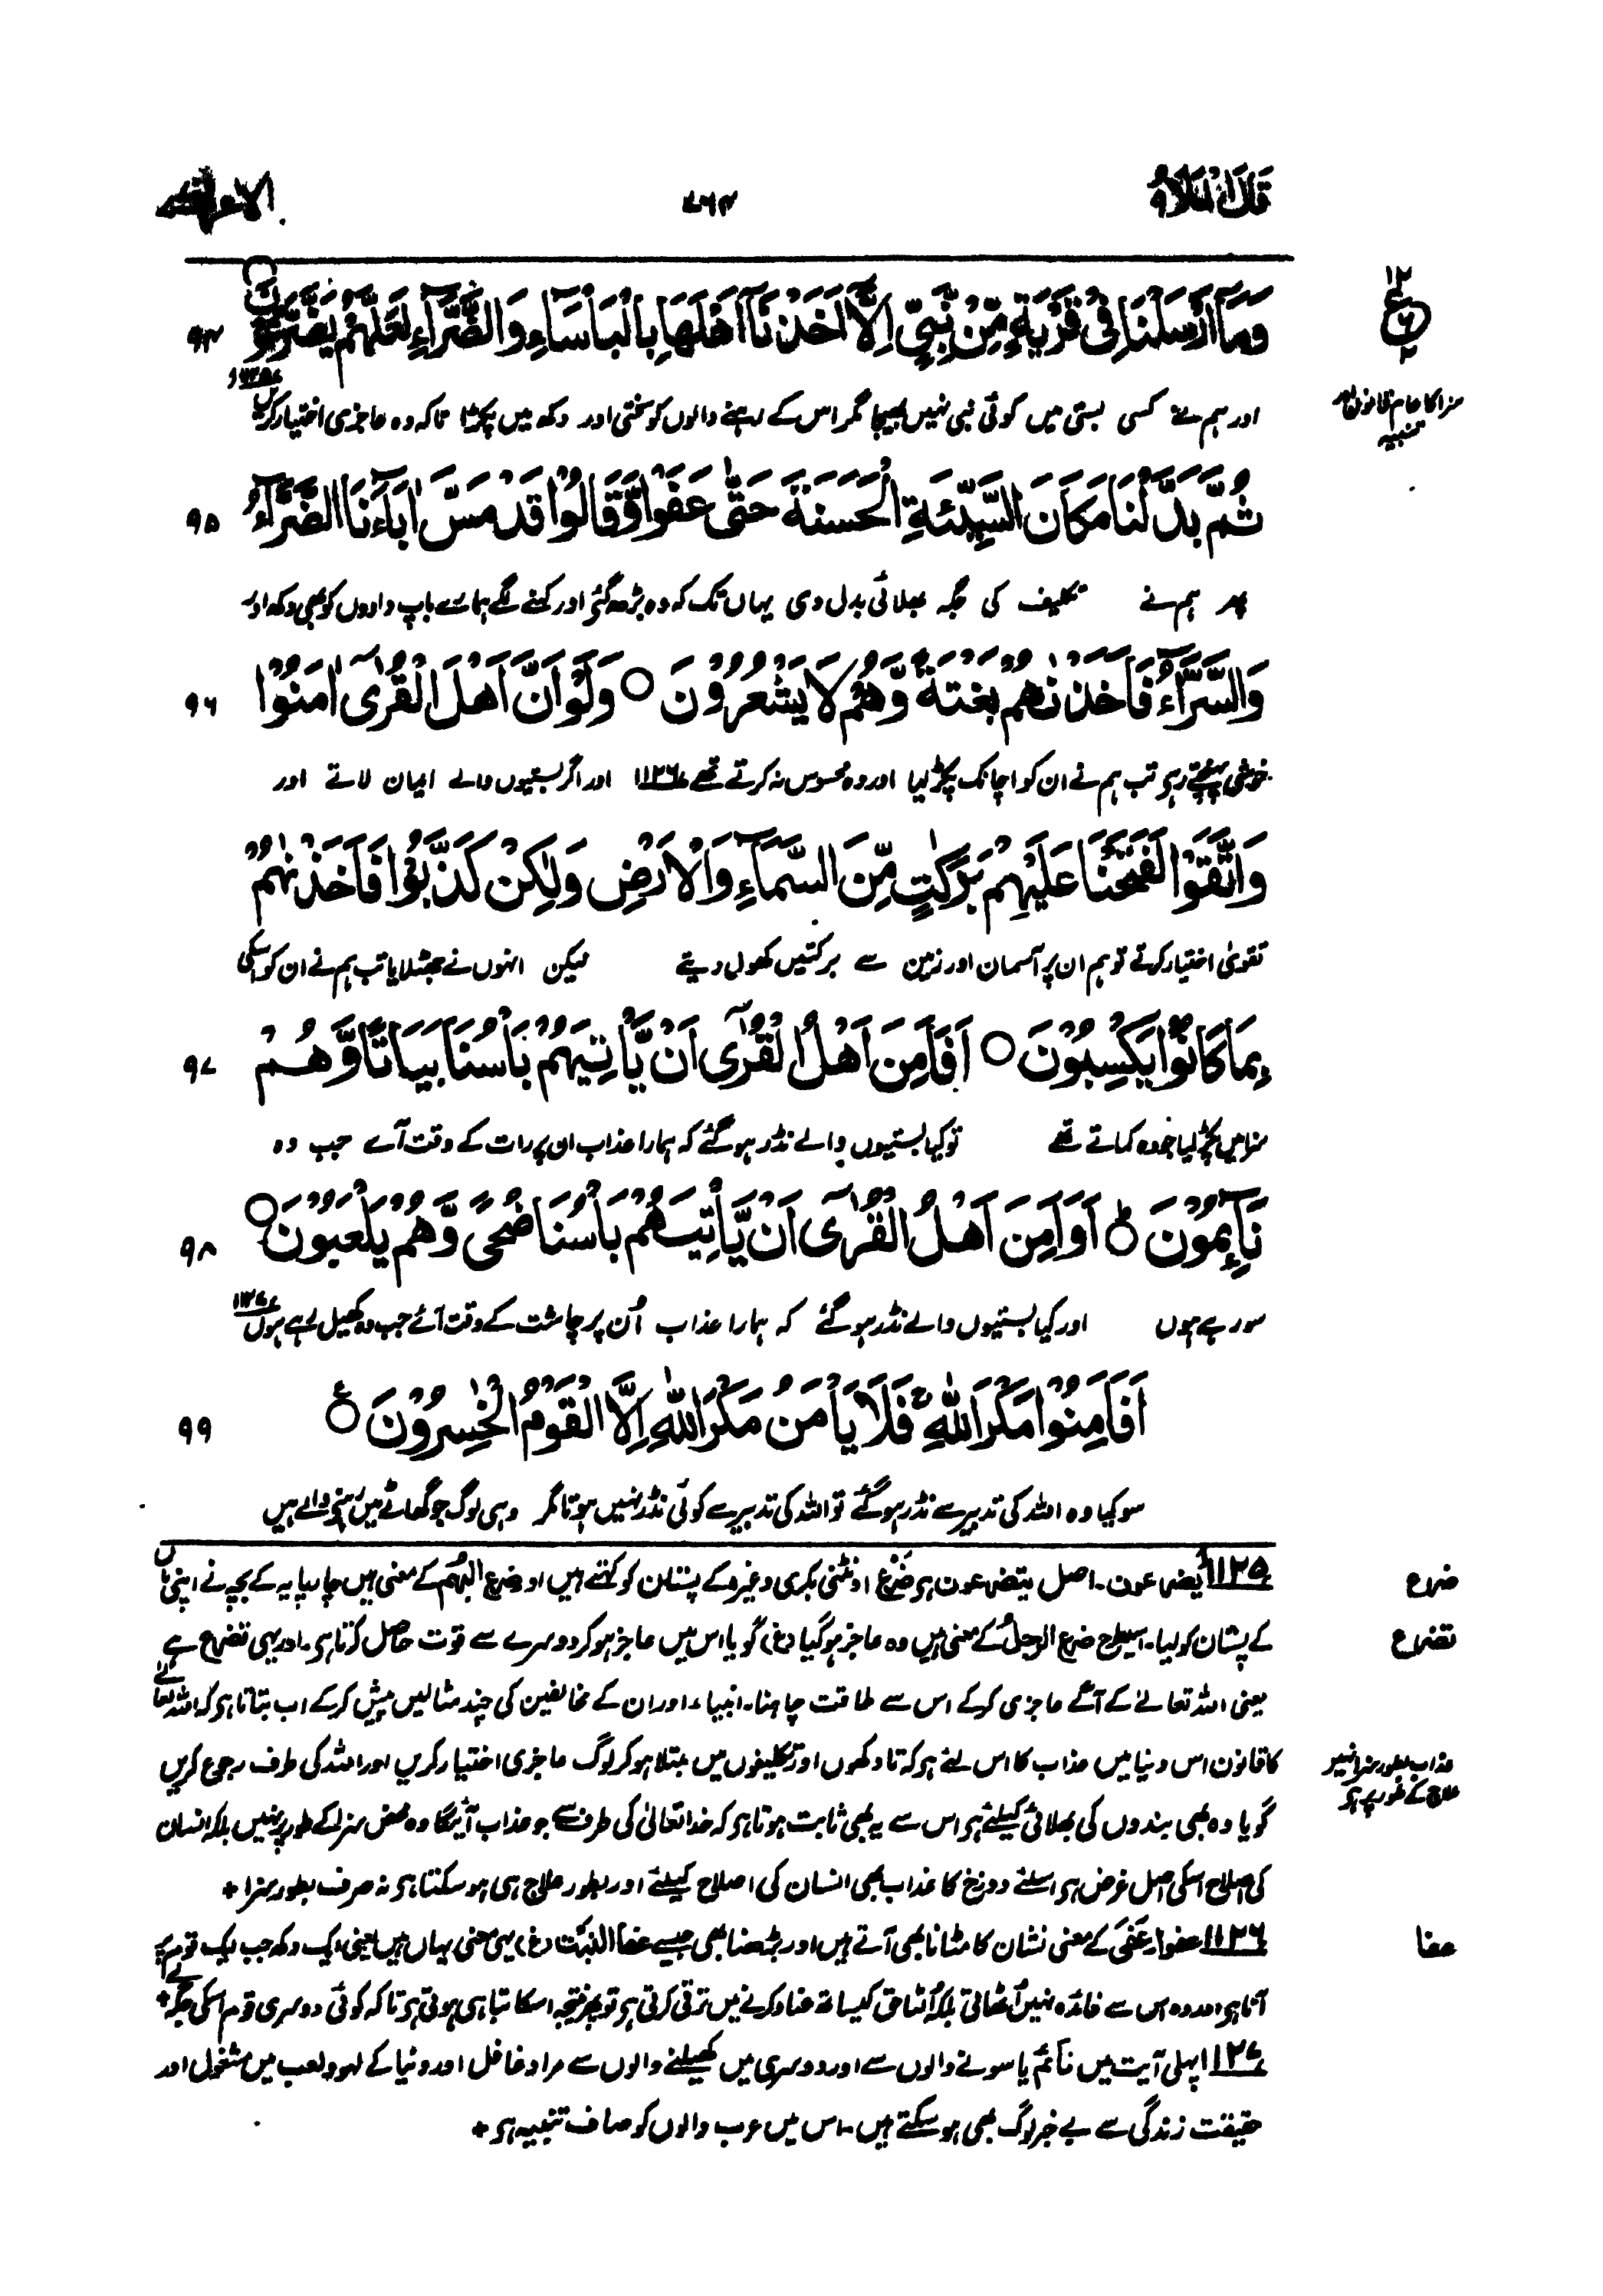 قَالَ الْمَلَاُ ۹
۷۶۴
الاعراف
۱۲
ع
۲
وَمَآ اَرْسَلْنَا فِیْ قَرْیَةٍ مِّنْ نَّبِیٍّ اِلَّآ اَخَذْنَآ اَهْلَهَا بِالْبَاْسَآءِ وَالضَّرَّآءِ لَعَلَّهُمْ یَضَّرَّعُوْنَ ۹۴
اور ہم نے کسی بستی میں کوئی نبی نہیں بھیجا مگر اس کے رہنے والوں کو سختی اور دکھ میں پکڑا تاکہ وہ عاجزی اختیار کریں ۱۱۲۵
سزا کا عام قانون اور
تنبیہ
ثُمَّ بَدَّلْنَا مَكَانَ السَّیِّئَةِ الْحَسَنَةَ حَتّٰی عَفَوْا وَّقَالُوْا قَدْ مَسَّ اٰبَآءَنَا الضَّرَّآءُ ۹۵
پھر ہم نے تکلیف کی جگہ بھلائی بدل دی یہاں تک کہ وہ بڑھ گئے اور کہنے لگے ہمارے باپ دادوں کو بھی دکھ اور
وَالسَّرَّآءُ فَاَخَذْنٰهُمْ بَغْتَةً وَّهُمْ لَا یَشْعُرُوْنَ ○ وَلَوْ اَنَّ اَهْلَ الْقُرٰٓی اٰمَنُوْا ۹۶
خوشی پہنچتے رہی تب ہم نے ان کو اچانک پکڑ لیا اور وہ محسوس نہ کرتے تھے ۱۱۲۶ اور اگر بستیوں والے ایمان لاتے اور
وَاتَّقَوْا لَفَتَحْنَا عَلَیْهِمْ بَرَكٰتٍ مِّنَ السَّمَآءِ وَالْاَرْضِ وَلٰكِنْ كَذَّبُوْا فَاَخَذْنٰهُمْ
تقویٰ اختیار کرتے تو ہم ان پر آسمان اور زمین سے برکتیں کھول دیتے لیکن انہوں نے جھٹلایا تب ہم نے ان کو اسکی
بِمَا كَانُوْا یَكْسِبُوْنَ ○ اَفَاَمِنَ اَهْلُ الْقُرٰٓی اَنْ یَّاْتِیَهُمْ بَاْسُنَا بَیَاتًا وَّهُمْ ۹۷
سزا میں پکڑ لیا جو وہ کماتے تھے تو کیا بستیوں والے نڈر ہو گئے کہ ہمارا عذاب ان پر رات کے وقت آئے جب وہ
نَآئِمُوْنَ ؕ اَوَ اَمِنَ اَهْلُ الْقُرٰٓی اَنْ یَّاْتِیَهُمْ بَاْسُنَا ضُحًی وَّهُمْ یَلْعَبُوْنَ ○ ۹۸
سو رہے ہوں اور کیا بستیوں والے نڈر ہو گئے کہ ہمارا عذاب اُن پر چاشت کے وقت آئے جب وہ کھیل رہے ہوں ۱۱۲۷
اَفَاَمِنُوْا مَكْرَ اللّٰهِ ۚ فَلَا یَاْمَنُ مَكْرَ اللّٰهِ اِلَّا الْقَوْمُ الْخٰسِرُوْنَ ○ ع ۹۹
سو کیا وہ اللہ کی تدبیر سے نڈر ہو گئے تو اللہ کی تدبیر سے کوئی نڈر نہیں ہوتا مگر وہی لوگ جو گھاٹے میں رہنے والے ہیں
ضرع
۱۱۲۵ یضرعون۔ اصل یتضرعون ہی ضَرْع اونٹنی بکری وغیرہ کے پستان کو کہتے ہیں اور ضرع البَہْم کے معنی ہیں چارپایہ کے بچہ نے اپنی ماں
تضراع
کے پستان کو لیا۔ اسیطرح ضرع الرجلُ کے معنی ہیں وہ عاجز ہو گیا (غ) گویا اس میں عاجز ہو کر دوسرے سے قوت حاصل کرتا ہی۔ اور یہی تضرع ہے
یعنی اللہ تعالیٰ کے آگے عاجزی کر کے اس سے طاقت چاہنا۔ انبیاء اور ان کے مخالفین کی چند مثالیں پیش کر کے اب بتاتا ہی کہ اللہ تعالیٰ
عذاب بطور سزا نہیں
علاج کے طور پر ہی
کا قانون اس دنیا میں عذاب کا اس لئے ہی کہ تا دکھوں اور تکلیفوں میں مبتلا ہو کر لوگ عاجزی اختیار کریں اور اللہ کی طرف رجوع کریں
گویا وہ بھی بندوں کی بھلائی کیلئے ہی اس سے یہ بھی ثابت ہوتا ہی کہ خدا تعالیٰ کی طرف سے جو عذاب آئیگا وہ محض سزا کے طور پر نہیں بلکہ انسان
کی اصلاح اسکی اصل غرض ہی اسلئے دوزخ کا عذاب بھی انسان کی اصلاح کیلئے اور بطور علاج ہی ہو سکتا ہی نہ صرف بطور سزا +
عفا
۱۱۲۶ عفوا۔ عَفٰی کے معنی نشان کا مٹانا بھی آتے ہیں اور بڑھنا بھی جیسے عفا النبت (غ) یہی معنی یہاں ہیں یعنی ایک دکھ جب ایک قوم پر
آتا ہی اور وہ اس سے فائدہ نہیں اُٹھاتی بلکہ اُلٹا حق کیساتھ عناد کرنے میں ترقی کرتی ہی تو پھر نتیجہ اسکا تباہی ہوتی ہی تاکہ کوئی دوسری قوم اسکی جگہ لے +
۱۱۲۷ پہلی آیت میں نائم یا سونے والوں سے اور دوسری میں کھیلنے والوں سے مراد غافل اور دنیا کے لہو و لعب میں مشغول اور
حقیقت زندگی سے بے خبر لوگ بھی ہو سکتے ہیں۔ اس میں عرب والوں کو صاف تنبیہ ہی +